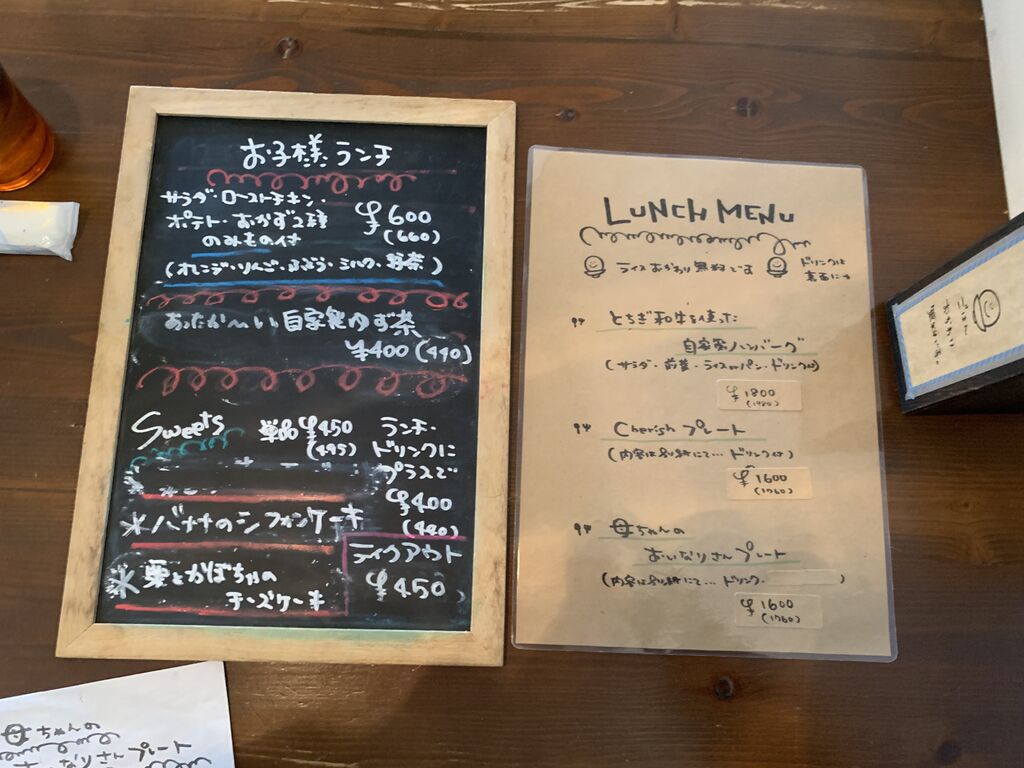 お子様ランチ
サラダ・ローストチキン・
ポテト・おかず2種
のみもの付
¥600
(660)
(オレンジ・りんご・ぶどう・ミルク・お茶)
あったか〜い自家製ゆず茶
¥400(440)
Sweets
単品¥450
(495)
ランチ・
ドリンクに
プラスで
¥400
(440)
*バナナのシフォンケーキ
*栗とかぼちゃの
チーズケーキ
テイクアウト
¥450
LUNCH MENU
ライスおかわり無料です
ドリンクは
裏面に→
とちぎ和牛を使った
自家製ハンバーグ
(サラダ・前菜・ライスorパン・ドリンク付)
¥1800
(1980)
Cherishプレート
(内容は別紙にて…ドリンク付)
¥1600
(1760)
母ちゃんの
おいなりさんプレート
(内容は別紙にて…ドリンク・ )
¥1600
(1760)
母ちゃんの
なりさんプレート